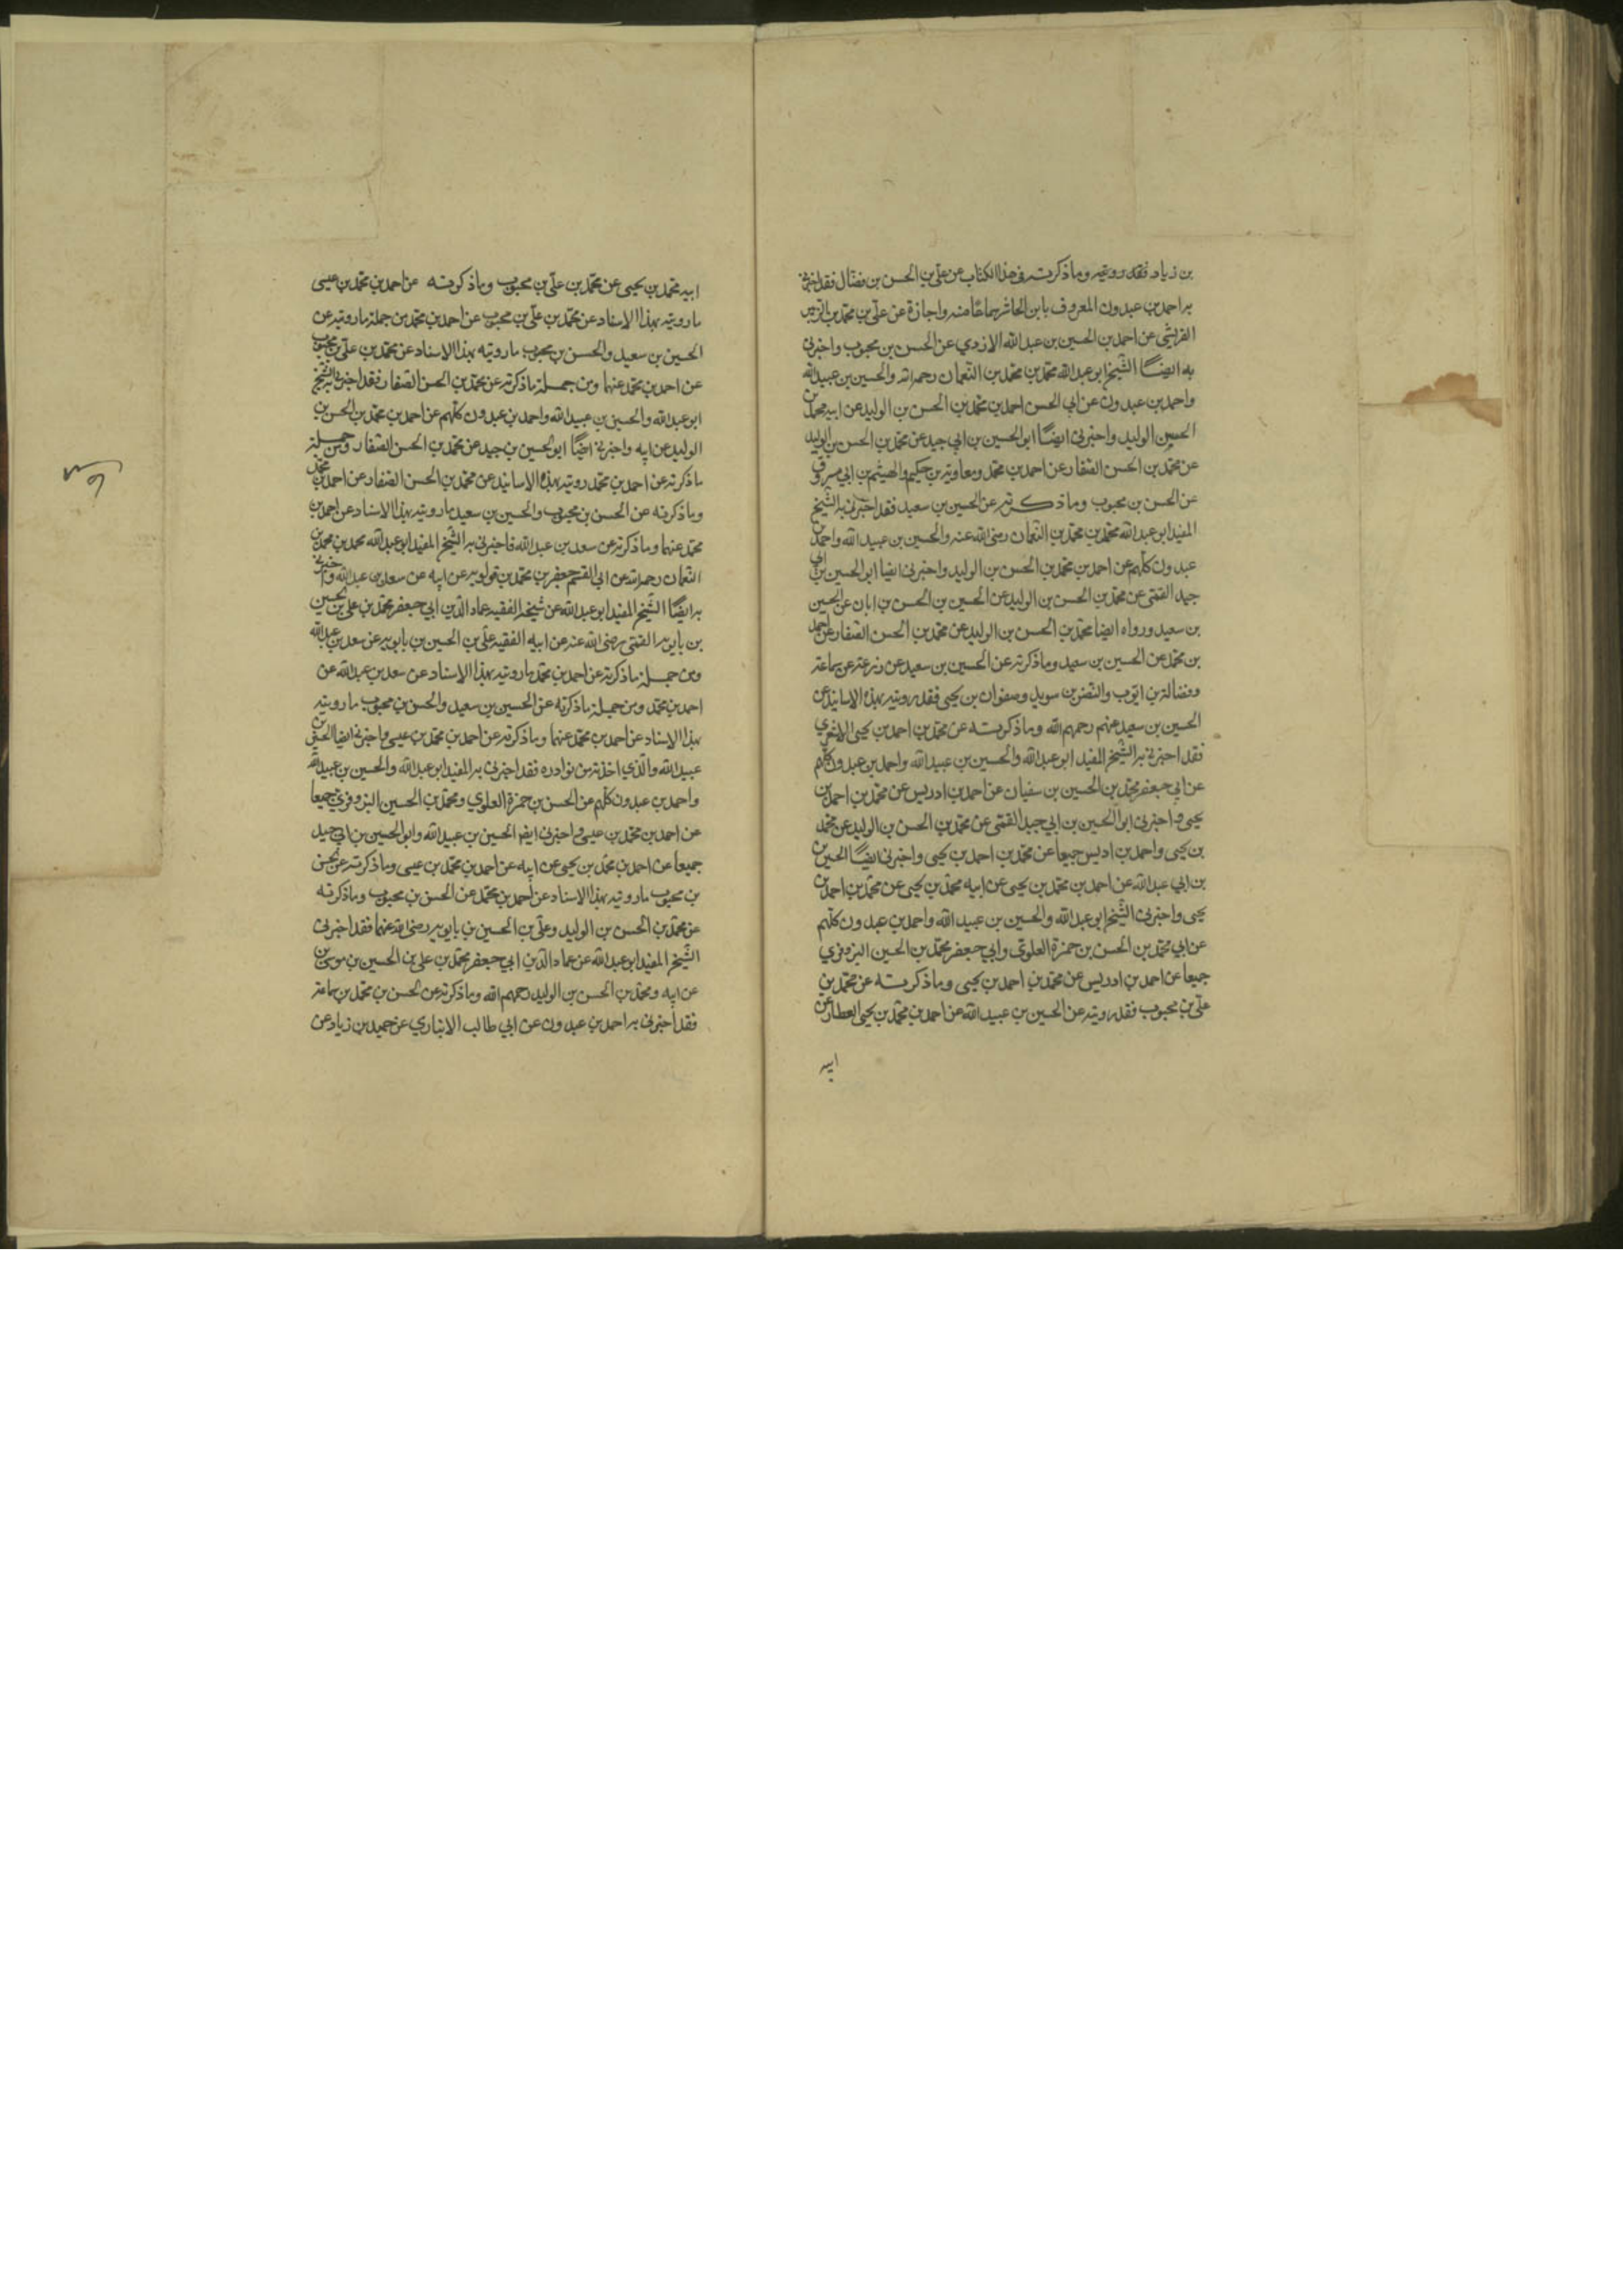 بن زياد فقد رويته وما ذكرته في هذا الكتاب عن علي بن الحسن بن فضال فقد اخبرني
به احمد بن عبدون المعروف بابن الحاشر سماعا منه واجازة عن علي بن محمد بن الزبير
القرشي عن احمد بن الحسين بن عبد الله الازدي عن الحسن بن محبوب واخبرني
به ايضا الشيخ ابو عبد الله محمد بن محمد بن النعمان رحمه الله والحسين بن عبيد الله
واحمد بن عبدون عن ابي الحسن احمد بن محمد بن الحسن بن الوليد عن ابيه محمد بن
الحسين الوليد واخبرني ايضا ابو الحسين بن ابي جيد عن محمد بن الحسن بن الوليد
عن محمد بن الحسن الصفار عن احمد بن محمد ومعاوية بن حكيم والهيثم بن ابي مسروق
عن الحسن بن محبوب وما ذكرته عن الحسين بن سعيد فقد اخبرني به الشيخ
المفيد ابو عبد الله محمد بن محمد بن النعمان رضي الله عنه والحسين بن عبيد الله واحمد بن
عبدون كلهم عن احمد بن محمد بن الحسن بن الوليد واخبرني ايضا ابو الحسين بن ابي
جيد القمي عن محمد بن الحسن بن الوليد عن الحسين بن الحسن بن ابان عن الحسين
بن سعيد ورواه ايضا محمد بن الحسن بن الوليد عن محمد بن الحسن الصفار عن احمد
بن محمد عن الحسين بن سعيد وما ذكرته عن الحسين بن سعيد عن زرعة عن سماعة
وفضالة بن ايوب والنضر بن سويد وصفوان بن يحيى فقد رويته بهذه الاسانيد عن
الحسين بن سعيد عنهم رحمهم الله وما ذكرته عن محمد بن احمد بن يحيى الاشعري
فقد اخبرني به الشيخ المفيد ابو عبد الله والحسين بن عبيد الله واحمد بن عبدون كلهم
عن ابي جعفر محمد بن الحسين بن سفيان عن احمد بن ادريس عن محمد بن احمد بن
يحيى واخبرني ابو الحسين بن ابي جيد القمي عن محمد بن الحسن بن الوليد عن محمد
بن يحيى واحمد بن ادريس جميعا عن محمد بن احمد بن يحيى واخبرني ايضا الحسين
بن ابي عبد الله عن احمد بن محمد بن يحيى عن ابيه محمد بن يحيى عن محمد بن احمد بن
يحيى واخبرني الشيخ ابو عبد الله والحسين بن عبيد الله واحمد بن عبدون كلهم
عن ابي محمد بن الحسن بن حمزة العلوي وابي جعفر محمد بن الحسين البزوفري
جميعا عن احمد بن ادريس عن محمد بن احمد بن يحيى وما ذكرته عن محمد بن
علي بن محبوب فقد رويته عن الحسين بن عبيد الله عن احمد بن محمد بن يحيى العطار عن
ابيه
ابيه محمد بن يحيى عن محمد بن علي بن محبوب وما ذكرته عن احمد بن محمد بن عيسى
ما رويته بهذا الاسناد عن محمد بن علي بن محبوب عن احمد بن محمد بن جملة ما رويته عن
الحسين بن سعيد والحسن بن محبوب ما رويته بهذا الاسناد عن محمد بن علي بن محبوب
عن احمد بن محمد عنهما ومن جملة ما ذكرته عن محمد بن الحسن الصفار فقد اخبرني به الشيخ
ابو عبد الله والحسين بن عبيد الله واحمد بن عبدون كلهم عن احمد بن محمد بن الحسن بن
الوليد عن ابيه واخبرني ايضا ابو الحسين بن جيد عن محمد بن الحسن الصفار ومن جملة
ما ذكرته عن احمد بن محمد رويته بهذه الاسانيد عن محمد بن الحسن الصفار عن احمد بن محمد
وما ذكرته عن الحسن بن محبوب والحسين بن سعيد ما رويته بهذا الاسناد عن احمد بن
محمد عنهما وما ذكرته عن سعد بن عبد الله فاخبرني به الشيخ المفيد ابو عبد الله محمد بن محمد بن
النعمان رحمه الله عن ابي القسم جعفر بن محمد بن قولويه عن ابيه عن سعد بن عبد الله واخبرني
به ايضا الشيخ المفيد ابو عبد الله عن شيخه الفقيه عماد الدين ابي جعفر محمد بن علي بن الحسين
بن بابويه القمي رضي الله عنه عن ابيه الفقيه علي بن الحسين بن بابويه عن سعد بن عبد الله
ومن جملة ما ذكرته عن احمد بن محمد ما رويته بهذا الاسناد عن سعد بن عبد الله عن
احمد بن محمد ومن جملة ما ذكرته عن الحسين بن سعيد والحسن بن محبوب ما رويته
بهذا الاسناد عن احمد بن محمد عنهما وما ذكرته عن احمد بن محمد بن عيسى واخبرني ايضا الحسين بن
عبيد الله والذي اخذته من نوادره فقد اخبرني به المفيد ابو عبد الله والحسين بن عبيد الله
واحمد بن عبدون كلهم عن الحسن بن حمزة العلوي ومحمد بن الحسين البزوفري جميعا
عن احمد بن محمد بن عيسى واخبرني ايضا الحسين بن عبيد الله وابو الحسين بن ابي جيد
جميعا عن احمد بن محمد بن يحيى عن ابيه عن احمد بن محمد بن عيسى وما ذكرته عن الحسن
بن محبوب ما رويته بهذا الاسناد عن احمد بن محمد عن الحسن بن محبوب وما ذكرته
عن محمد بن الحسن بن الوليد وعلي بن الحسين بن بابويه رضي الله عنهما فقد اخبرني
الشيخ المفيد ابو عبد الله عن عماد الدين ابي جعفر محمد بن علي بن الحسين بن موسى بن
عن ابيه ومحمد بن الحسن بن الوليد رحمهم الله وما ذكرته عن الحسن بن محمد بن سماعة
فقد اخبرني به احمد بن عبدون عن ابي طالب الانباري عن حميد بن زياد عن